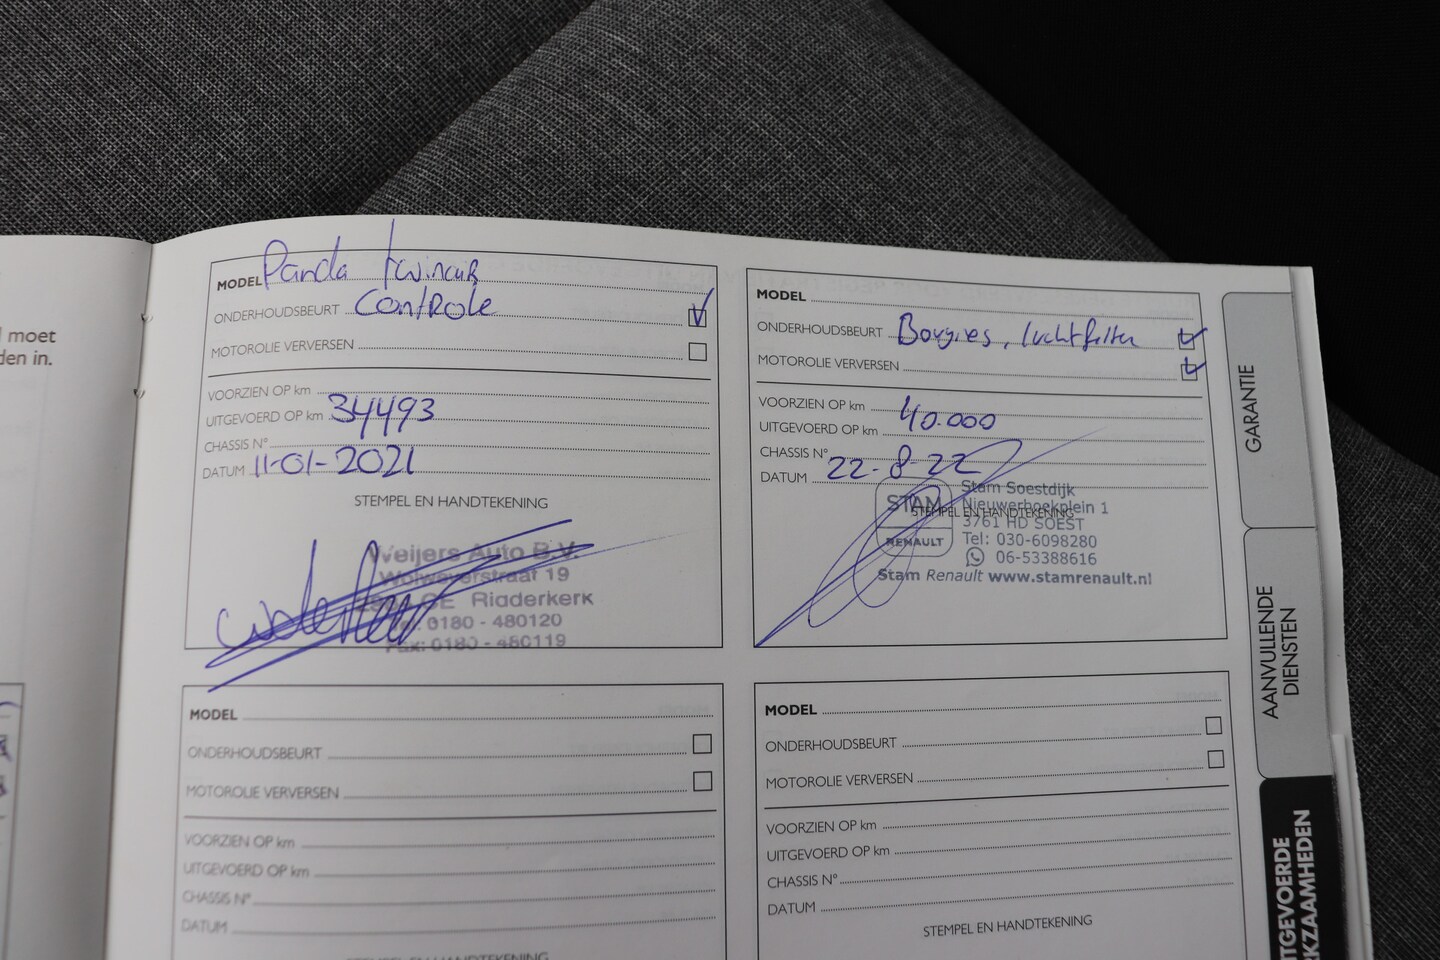 moet
den in.
MODEL Panda twinair
ONDERHOUDSBEURT Controle
MOTOROLIE VERVERSEN
VOORZIEN OP km
UITGEVOERD OP km 34493
CHASSIS N°
DATUM 11-01-2021
STEMPEL EN HANDTEKENING
Weijers Auto B.V.
Wolweverstraat 19
Ridderkerk
Tel: 0180 - 480120
Fax: 0180 - 480119
MODEL
ONDERHOUDSBEURT Bougies, luchtfilter
MOTOROLIE VERVERSEN
VOORZIEN OP km
UITGEVOERD OP km 40.000
CHASSIS N°
DATUM 22-8-22
STEMPEL EN HANDTEKENING
STAM
RENAULT
Stam Soestdijk
Nieuwerhoekplein 1
3761 HD SOEST
Tel: 030-6098280
06-53388616
Stam Renault www.stamrenault.nl
MODEL
ONDERHOUDSBEURT
MOTOROLIE VERVERSEN
VOORZIEN OP km
UITGEVOERD OP km
CHASSIS N°
DATUM
STEMPEL EN HANDTEKENING
MODEL
ONDERHOUDSBEURT
MOTOROLIE VERVERSEN
VOORZIEN OP km
UITGEVOERD OP km
CHASSIS N°
DATUM
STEMPEL EN HANDTEKENING
GARANTIE
AANVULLENDE
DIENSTEN
ITGEVOERDE
RKZAAMHEDEN